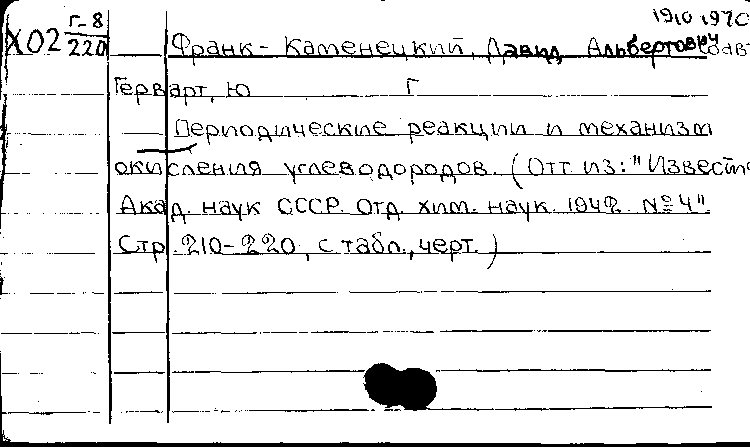 1910 1970
Х02 Г-8/220 Франк-Каменецкий, Давид Альбертович
Герварт, Ю Г
Периодические реакции и механизм
окисления углеводородов. (Отт. из: "Известия
Акад. наук СССР. Отд. хим. наук. 1942. №4".
Стр. 210-220, с табл., черт.)